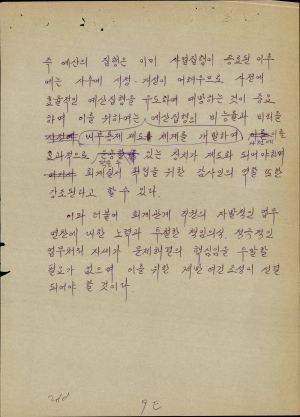 즉 예산의 집행은 이미 사업집행이 종료된 이후
에는 사후에 시정·개선이 어려우므로 사전에
효율적인 예산집행을 유도하며 예방하는 것이 중요
하며 이를 위하여는 예산집행의 비능률과 비위를
내부통제 제도 체계를 개발하여
효과적으로 운용할 수 있는 장치가 제도화 되어야하며
회계질서 확립을 위한 감사인의 역할 또한
강조된다고 할 수 있다.
이와 더불어 회계관계 직원의 자발적인 업무
연찬에 대한 노력과 투철한 책임의식, 적극적인
업무처리 자세가 문제해결의 핵심임을 두말할
필요가 없으며 이를 위한 제반 여건조성이 선결
되어야 할 것이다
9E